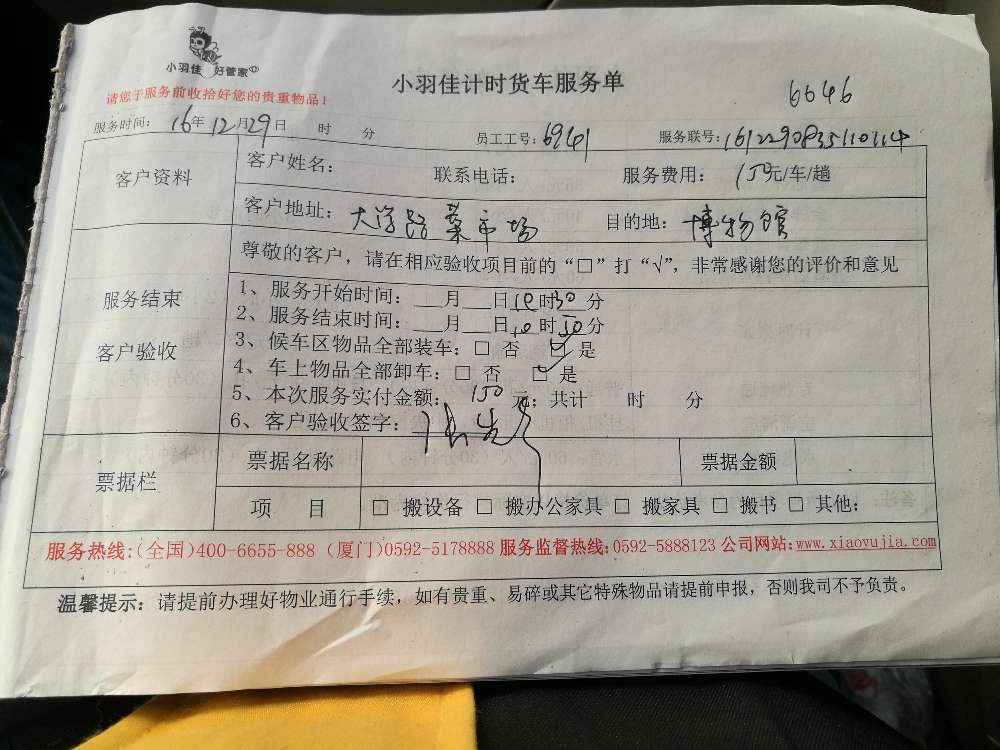 小羽佳 好管家
小羽佳计时货车服务单
6646
请您于服务前收拾好您的贵重物品!
服务时间: 16年12月29日 时 分 员工工号: 6941 服务联号: 161229083510114
客户资料
客户姓名: 联系电话: 服务费用: 150元/车/趟
客户地址: 大学路菜市场 目的地: 博物馆
服务结束
客户验收
尊敬的客户,请在相应验收项目前的“□”打“√”,非常感谢您的评价和意见
1、服务开始时间: ___月___日10时30分
2、服务结束时间: ___月___日10时50分
3、候车区物品全部装车: □ 否 ☑ 是
4、车上物品全部卸车: □ 否 ☑ 是
5、本次服务实付金额: 150元; 共计 时 分
6、客户验收签字:
票据栏
票据名称 票据金额
项 目 □ 搬设备 □ 搬办公家具 □ 搬家具 □ 搬书 □ 其他:
服务热线:(全国)400-6655-888 (厦门)0592-5178888 服务监督热线:0592-5888123 公司网站:www.xiaoyujia.com
温馨提示: 请提前办理好物业通行手续,如有贵重、易碎或其它特殊物品请提前申报,否则我司不予负责。